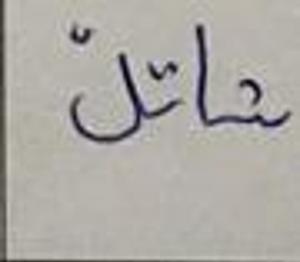 شاتل